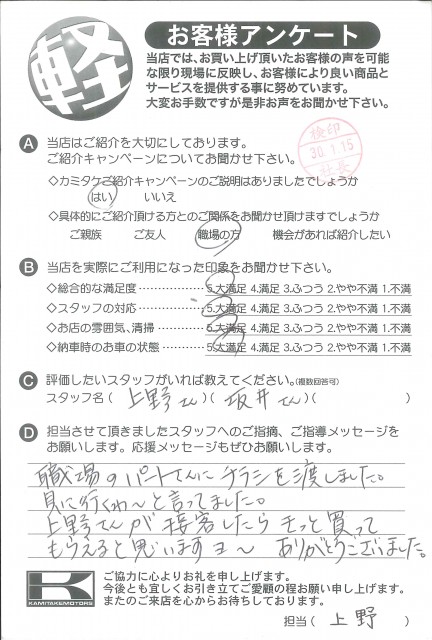 軽
お客様アンケート
当店では、お買い上げ頂いたお客様の声を可能
な限り現場に反映し、お客様により良い商品と
サービスを提供する事に努めています。
大変お手数ですが是非お声をお聞かせ下さい。
検印
30.1.15
社長
A 当店はご紹介を大切にしております。
ご紹介キャンペーンについてお聞かせ下さい。
◇カミタケご紹介キャンペーンのご説明はありましたでしょうか
はい いいえ
◇具体的にご紹介頂ける方とのご関係をお聞かせ頂けますでしょうか
ご親族 ご友人 職場の方 機会があれば紹介したい
B 当店を実際にご利用になった印象をお聞かせ下さい。
◇総合的な満足度 5.大満足 4.満足 3.ふつう 2.やや不満 1.不満
◇スタッフの対応 5.大満足 4.満足 3.ふつう 2.やや不満 1.不満
◇お店の雰囲気、清掃 5.大満足 4.満足 3.ふつう 2.やや不満 1.不満
◇納車時のお車の状態 5.大満足 4.満足 3.ふつう 2.やや不満 1.不満
C 評価したいスタッフがいれば教えてください。(複数回答可)
スタッフ名(上野さん)(坂井さん)( )
D 担当させて頂きましたスタッフへのご指摘、ご指導メッセージを
お願いします。応援メッセージもぜひお願します。
職場のパートさんにチラシを渡しました。
見に行くわ〜と言ってました。
上野さんが接客したらもっと買って
もらえると思いますヨ〜 ありがとうございました。
K
KAMITAKEMOTORS
ご協力に心よりお礼を申し上げます。
今後とも宜しくお引き立てご愛顧の程お願い申し上げます。
またのご来店を心からお待ちしております。
担当(上野)